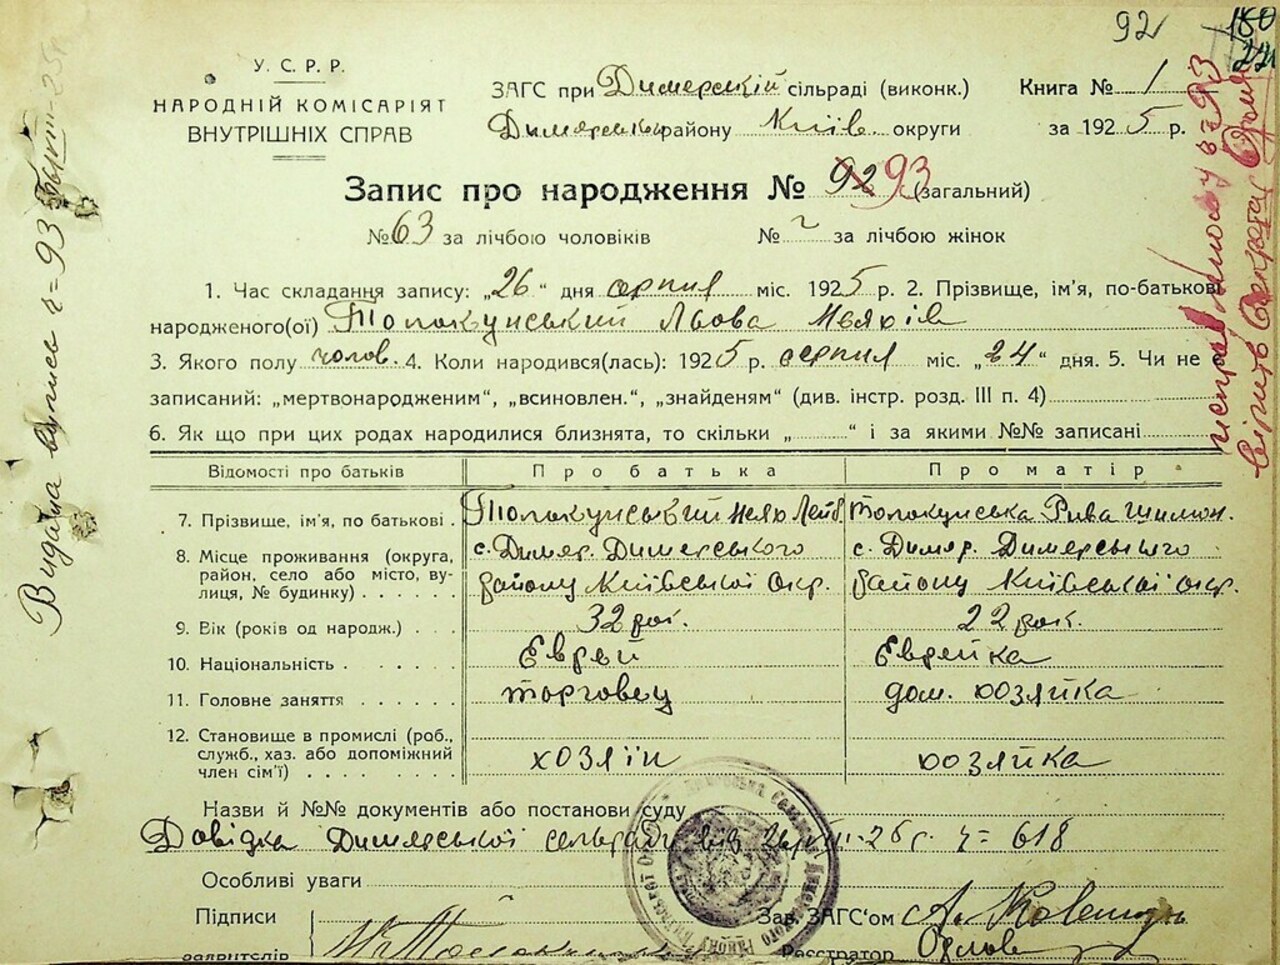 92
У. С. Р. Р.
НАРОДНІЙ КОМІСАРІЯТ
ВНУТРІШНІХ СПРАВ
ЗАГС при Димерській сільраді (виконк.)
Димерськ. району Київ. округи
Книга № 1
за 1925 р.
Запис про народження № 92 93 (загальний)
№ 63 за лічбою чоловіків
№ за лічбою жінок
1. Час складання запису: „26“ дня серпня міс. 1925 р. 2. Прізвище, ім'я, по-батькові
народженого(ої) Толокунський Льова
3. Якого полу чолов. 4. Коли народився(лась): 1925 р. серпня міс. „24“ дня. 5. Чи не є
записаний: „мертвонародженим“, „всиновлен.“, „знайденям“ (див. інстр. розд. III п. 4)
6. Як що при цих родах народилися близнята, то скільки „ “ і за якими №№ записані
Відомості про батьків Про батька Про матір
7. Прізвище, ім'я, по батькові . Толокунський Лейб. Толокунська Рива Шимон.
8. Місце проживання (округа, район, село або місто, вулиця, № будинку) . . . . . .
с. Димер. Димерського с. Димер. Димерського
району Київської окр. району Київської окр.
9. Вік (років од народж.) . . . 32 рок. 22 рок.
10. Національність . . . . . . Еврей Еврейка
11. Головне заняття . . . . . . торговец дом. хозяйка
12. Становище в промислі (роб., служб., хаз. або допоміжний член сім'ї) . . . . . . . хозяїн хозяйка
Назви й №№ документів або постанови суду
Довідка Димерської сельради від 25 г. ч= 618
Особливі уваги
Підписи
заявителів
Зав. ЗАГС'ом
Реєстратор
Видана випись ч= 93